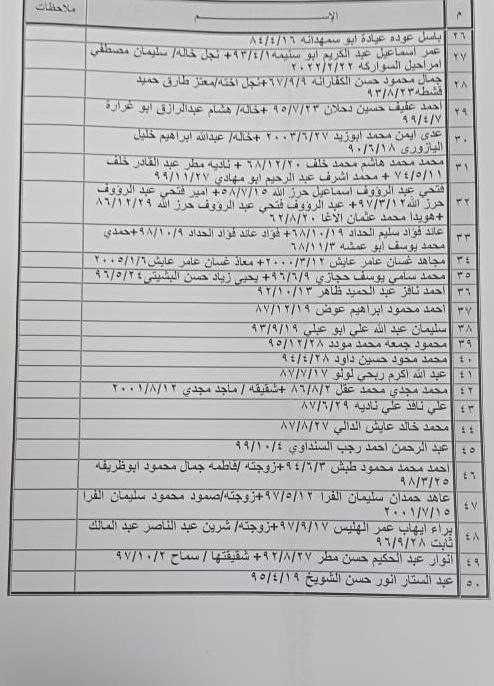 م الإســـــــم ملاحظات
٢٦ باسل عوده عيادة ابو سمهدانه ٨٤/٤/١٦
٢٧ عمر اسماعيل عبد الكريم ابو سنيمه ٩٣/٤/١+ نجل خاله/ سليمان مصطفي
امراحيل السواركه ٢٠٢٢/٢/٢٢
٢٨ جمال محمود حسن الكفارنه ٦٧/٩/٩+نجل اخته/معتز طارق حميد
قشطه ٩٣/٨/٢٣
٢٩ احمد عفيف حسين دحلان ٩٥/٧/٢٣ +خاله/ هشام عبدالرازق ابو غرارة
٩٩/٤/٧
٣٠ عدي ايمن محمد ابوزيد ٢٠٠٣/٦/٢٧ +خاله/ عبدالله ابراهيم خليل
اليازوري ٩٠/٦/١٨
٣١ محمد محمد هاشم محمد خلف ٦٨/١٢/٢٠+ ناديه مطر عبد القادر خلف
٧٤/٥/١١ + محمد اشرف عبد الرحيم ابو مهادي ٩٩/١١/٢٧
٣٢ فتحي عبد الرووف اسماعيل حرز الله ٥٨/٧/١٥+ امير فتحي عبد الرووف
حرز الله ٩٧/٣/١٢+ عبد الرووف فتحي عبد الرووف حرز الله ٨٦/١٢/٢٩
+هويدا محمد عثمان الاغا ٦٢/٨/٢٠
٣٣ عائد فؤاد سليم الحداد ٦٨/١٠/١٩+ فؤاد عائد فؤاد الحداد ٩٨/١٠/٩+حمدي
محمد يوسف ابو عمشه ٦٨/١١/٣
٣٤ مجاهد غسان عامر عايش ٢٠٠٠/٣/١٢+ معاذ غسان عامر عايش ٢٠٠٥/١/٦
٣٥ محمد سامي يوسف حجازي ٩٦/٦/٩+ يحيي زياد حسن البشيتي ٩٦/٥/٢٤
٣٦ احمد نافز عبد الحميد ظاهر ٩٢/١٠/١٣
٣٧ احمد محمود ابراهيم عوض ٨٧/١٢/١٩
٣٨ سليمان عبد الله علي ابو عبلي ٩٣/٩/١٩
٣٩ محمود جمعه محمد مودد ٩٥/١٢/٢٨
٤٠ محمد محمود حسين داود ٩٤/٤/٢٨
٤١ عبد الله اكرم ربحي لولو ٨٧/٧/١٧
٤٢ محمد مجدي محمد عقل ٨٦/٨/٢ +شقيقه / ماجد مجدي ٢٠٠١/٨/١٢
٤٣ علي نافذ علي ناديه ٨٧/٦/٢٩
٤٤ محمد خالد عايش الدالي ٨٧/٨/٢٧
٤٥ عبد الرحمن احمد رجب السنداوي ٩٩/١٠/٤
٤٦ احمد محمد محمود طبش ٩٤/٦/٣+زوجته /فاطمه جمال محمود ابوظريفه
٩٨/٣/٢٥
٤٧ عاهد حمدان سليمان الفرا ٩٧/٥/١٢+زوجته/صمود محمود سليمان الفرا
٢٠٠١/٧/١٥
٤٨ براء ايهاب عمر الهليس ٩٧/٩/١٧+زوجته/ شرين عبد الناصر عبد المالك
ثابت ٩٦/٩/٢٨
٤٩ انوار عبد الحكيم حسن مطر ٩٢/٨/٢٧+ شقيقتها / سماح ٩٧/١٠/٢
٥٠ عبد الستار انور حسن الشويخ ٩٥/٤/١٩